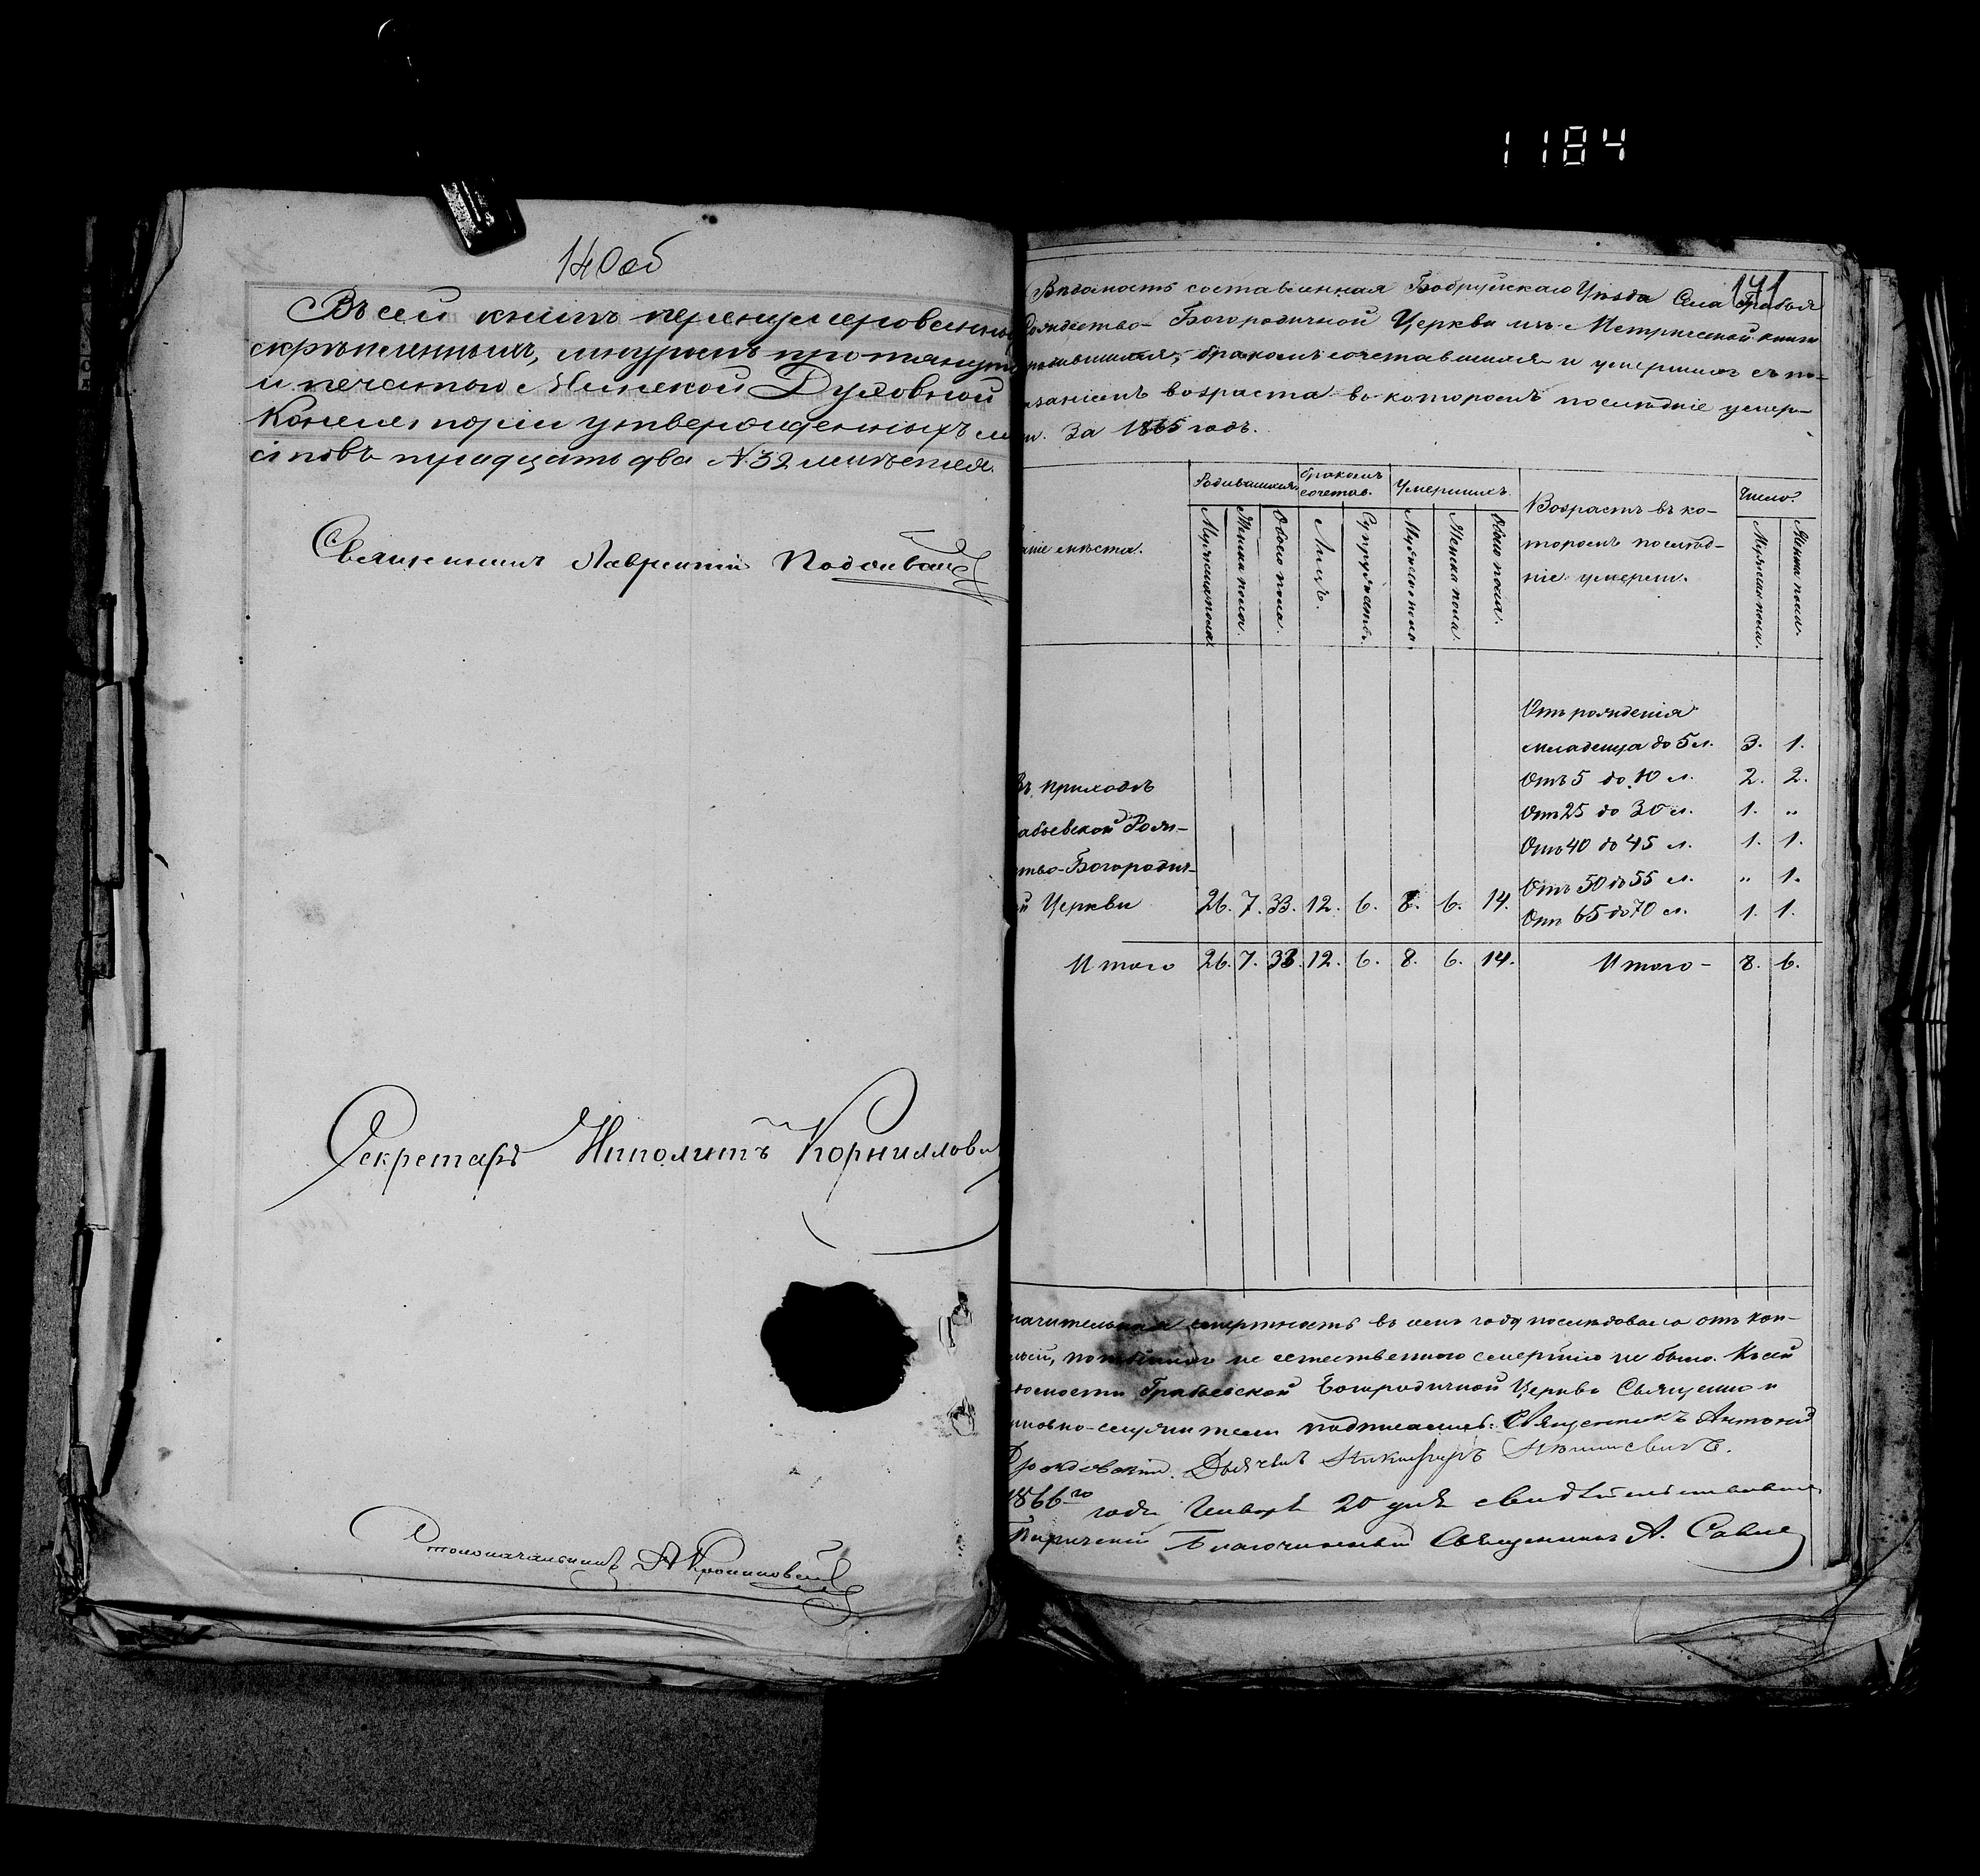 1184
140об
Въ сей книгѣ перенумерованны
скрѣпленныхъ, шнуромъ протянут
и печатью Минской Духовной
Консисторіи утвержденныхъ ли
стовъ тридцать два №32 имѣется.
Священникъ Лаврентій
Секретарь Ипполитъ Корнилови
Столоначальникъ
141
Вѣдомость составленная Бобруйскаго Уѣзда Села Грабья
Рождество-Богородичной Церкви изъ Метрической книги
родившихся, бракомъ сочетавшихся и умершихъ съ по-
казаніемъ возраста въ которомъ послѣдніе умер-
ли. За 1865 годъ.
аніе мѣста.
Родившихся.
Бракомъ сочетав.
Умершихъ.
Возрастъ въ ко-
торомъ послѣд-
ніе умерли.
Число.
Мужеска пола.
Женска пола.
Обоего пола.
Лицъ.
Супружествъ.
Мужеска пола.
Женска пола.
Обоего пола.
Мужеска пола.
Женска пола.
Отъ рожденія
младенца до 5 л. 3. 1.
Отъ 5 до 10 л. 2. 2.
Отъ 25 до 30 л. 1. "
Отъ 40 до 45 л. 1. 1.
Отъ 50 до 55 л. " 1.
Отъ 65 до 70 л. 1. 1.
Въ приходѣ
абьевской Рож-
ство-Богородич-
й Церкви 26. 7. 33. 12. 6. 8. 6. 14.
Итого 26. 7. 33. 12. 6. 8. 6. 14. Итого- 8. 6.
начительная смертность въ семъ году послѣдовала отъ
не естественною смертію не было. Къ сей
омости Грабьевской Богородичной Церкви Священно и
рковно-служители подписались: Священникъ Антоній
Дьячекъ Никифоръ
1866го года Января 20 дня свидѣтельствовалъ
Паричскій Благочинный Священникъ А. Савич